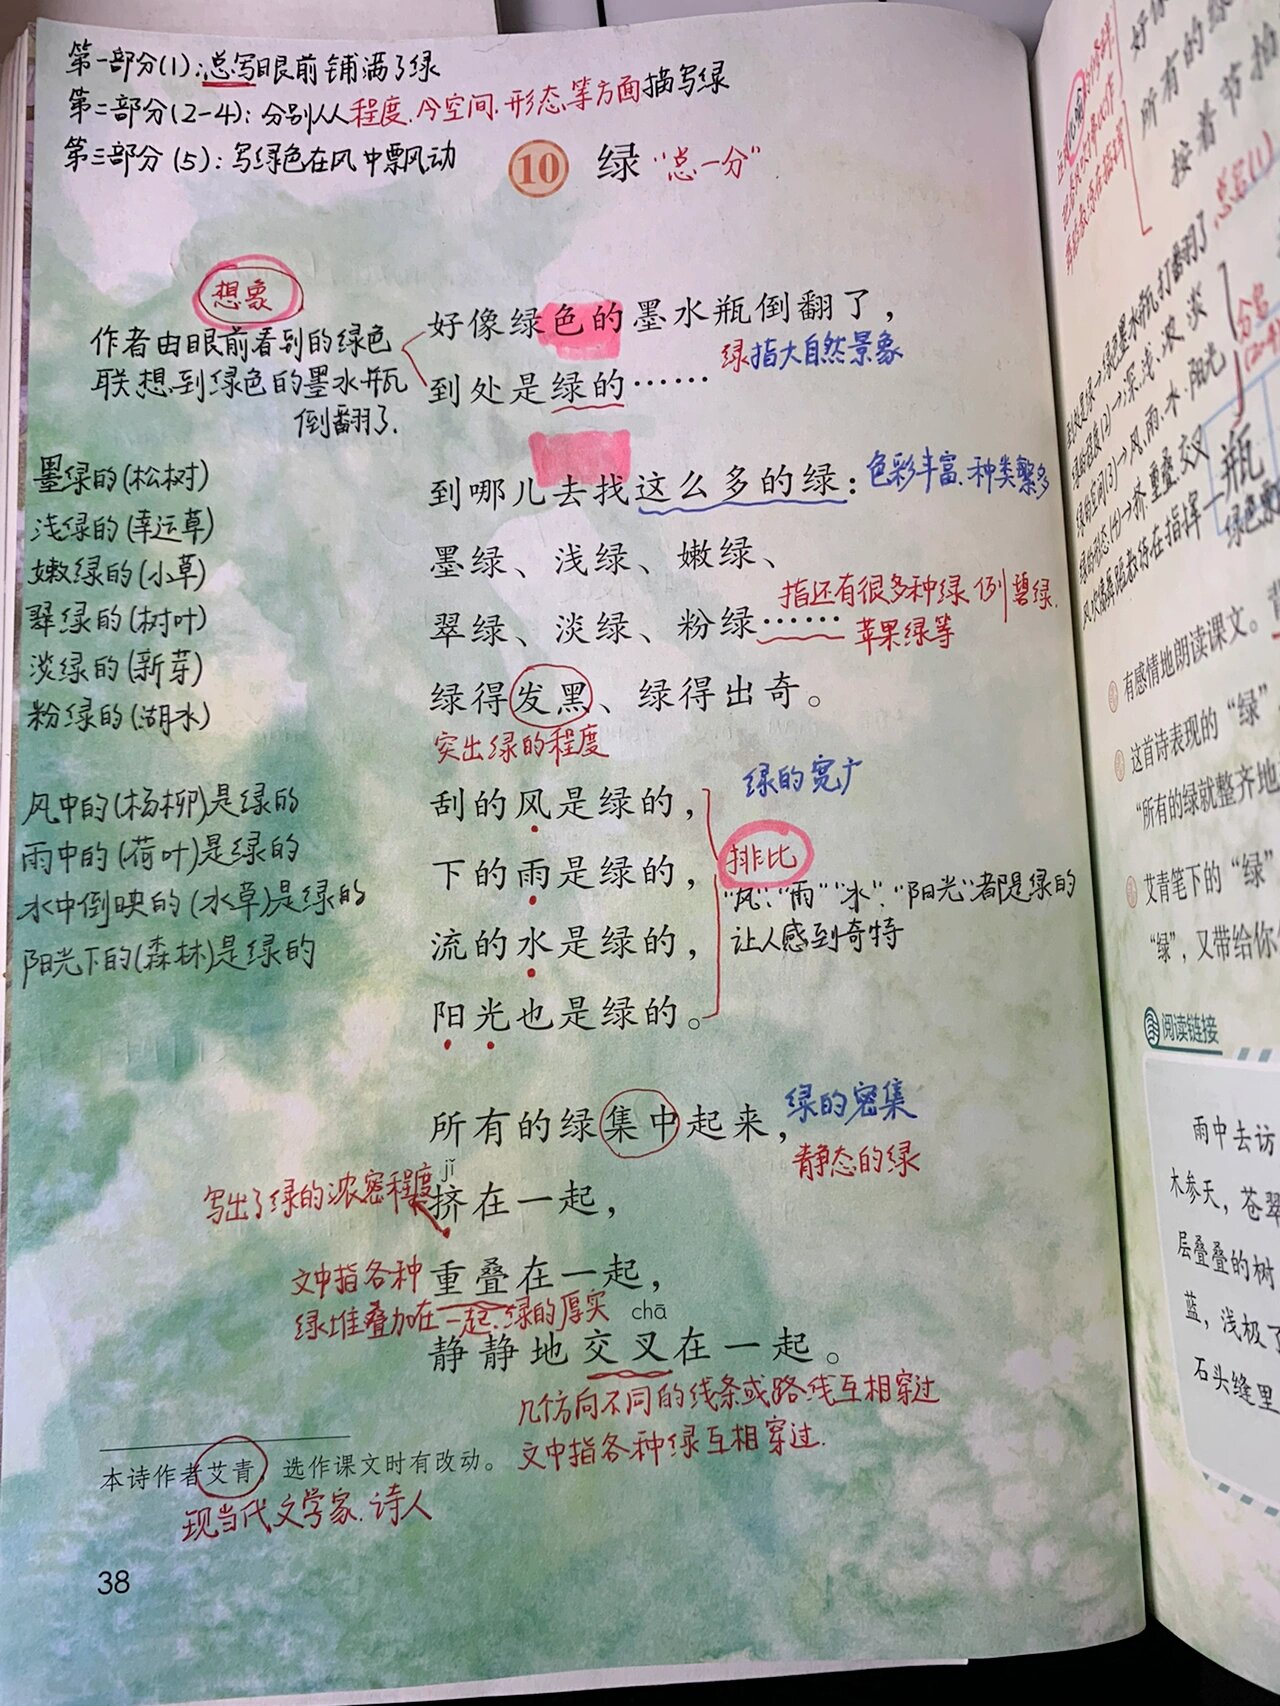 第一部分(1):总写眼前铺满了绿
第二部分(2-4):分别从程度、今空间、形态、等方面描写绿
第三部分(5):写绿色在风中飘动
10 绿 “总一分”
想象
作者由眼前看到的绿色
联想到绿色的墨水瓶
倒翻了.
好像绿色的墨水瓶倒翻了，
绿指大自然景象
到处是绿的……
到哪儿去找这么多的绿：
色彩丰富、种类繁多
墨绿、浅绿、嫩绿、
翠绿、淡绿、粉绿……
指还有很多种绿 例碧绿、
苹果绿等
绿得发黑、绿得出奇。
突出绿的程度
墨绿的(松树)
浅绿的(幸运草)
嫩绿的(小草)
翠绿的(树叶)
淡绿的(新芽)
粉绿的(湖水)
绿的宽广
刮的风是绿的，
下的雨是绿的，
流的水是绿的，
阳光也是绿的。
排比
“风”、“雨”“水”、“阳光”都是绿的
让人感到奇特
风中的(杨柳)是绿的
雨中的(荷叶)是绿的
水中倒映的(水草)是绿的
阳光下的(森林)是绿的
所有的绿集中起来，
绿的密集
静态的绿
jǐ
写出了绿的浓密程度
挤在一起，
文中指各种
重叠在一起，
绿堆叠加在一起、绿的厚实
chā
静静地交叉在一起。
几个方向不同的线条或路线互相穿过
文中指各种绿互相穿过.
本诗作者艾青，选作课文时有改动。
现当代文学家、诗人
38
所有的绿
按着节拍
总写(1)
分写
瓶
有感情地朗读课文。
这首诗表现的“绿”
“所有的绿就整齐地
艾青笔下的“绿”
“绿”，又带给你
阅读链接
雨中去访
木参天，苍翠
层叠叠的树
蓝，浅极了
石头缝里